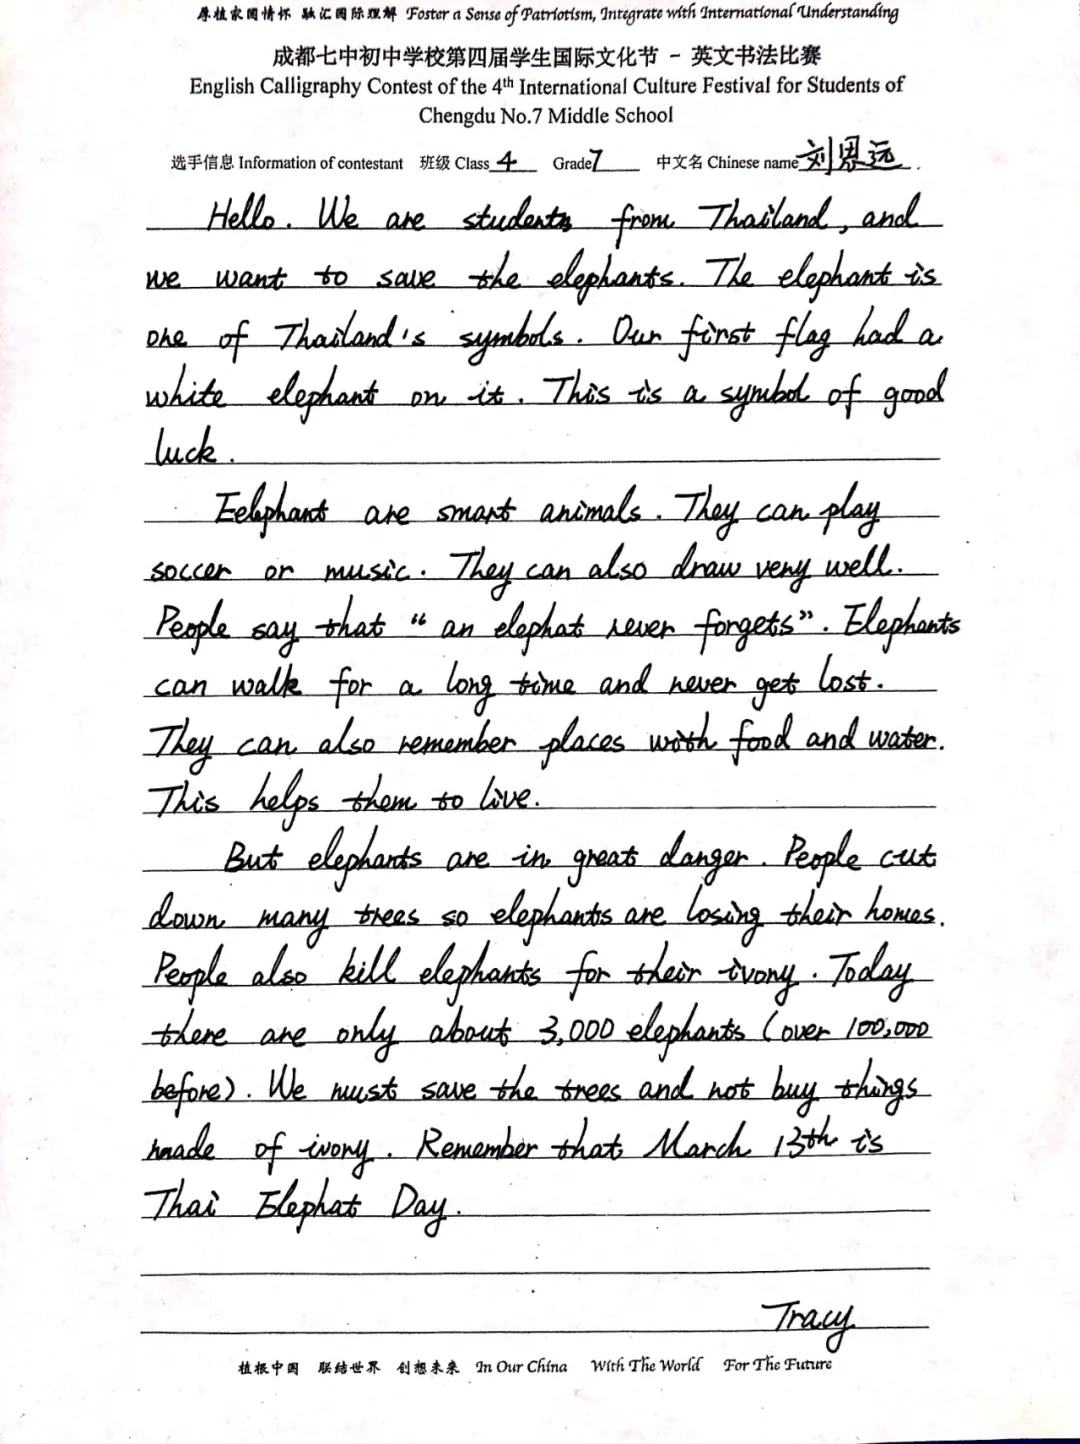 厚植家国情怀 融汇国际理解 Foster a Sense of Patriotism, Integrate with International Understanding
成都七中初中学校第四届学生国际文化节 - 英文书法比赛
English Calligraphy Contest of the 4th International Culture Festival for Students of
Chengdu No.7 Middle School
选手信息 Information of contestant 班级 Class 4 Grade 7 中文名 Chinese name 刘恩远.
Hello. We are students from Thailand, and
we want to save the elephants. The elephant is
one of Thailand's symbols. Our first flag had a
white elephant on it. This is a symbol of good
luck.
Eelphant are smart animals. They can play
soccer or music. They can also draw very well.
People say that "an elephat never forgets". Elephants
can walk for a long time and never get lost.
They can also remember places with food and water.
This helps them to live.
But elephants are in great danger. People cut
down many trees so elephants are losing their homes.
People also kill elephants for their ivory. Today
there are only about 3,000 elephants (over 100,000
before). We must save the trees and not buy things
made of ivory. Remember that March 13th is
Thai Elephat Day.
Tracy
植根中国 联结世界 创想未来 In Our China With The World For The Future